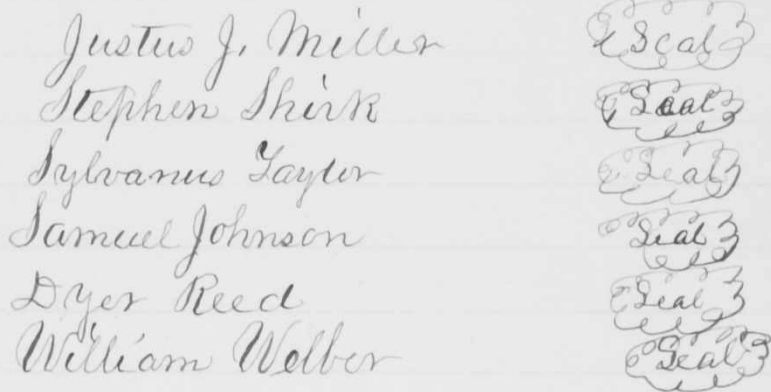 Justus J. Miller Seal
Stephen Shirk Seal
Sylvanus Taylor Seal
Samuel Johnson Seal
Dyer Reed Seal
William Welbor Seal